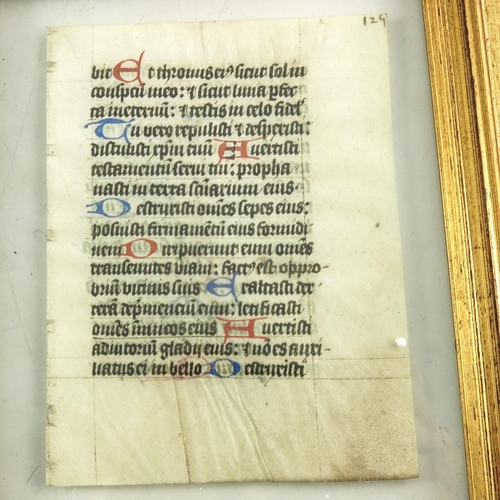 124
bit Et thronus eiꝰ sicut sol in
conspcũ meo: & sicut luna ꝑfec
ta ineternũ: & testis in celo fidel'
Tu vero repulisti & desperisti:
distulisti xpm̃ tuũ Auertisti
testamentũ serui tui: propha
nasti in terra scũarium eius·
Destruxisti om̃es sepes eius:
posuisti firmamẽtũ eius formidi
nem Diripuerunt eum om̃es
transeuntes viam: factꝰ est oppro-
briũ vicinis suis Exaltasti dex
terã dep̃mẽciũ eum: letificasti
om̃es inĩmicos eius Auertisti
adiutoriũ gladij eius: & nõ es auxi-
liatus ei in bello Destruxisti